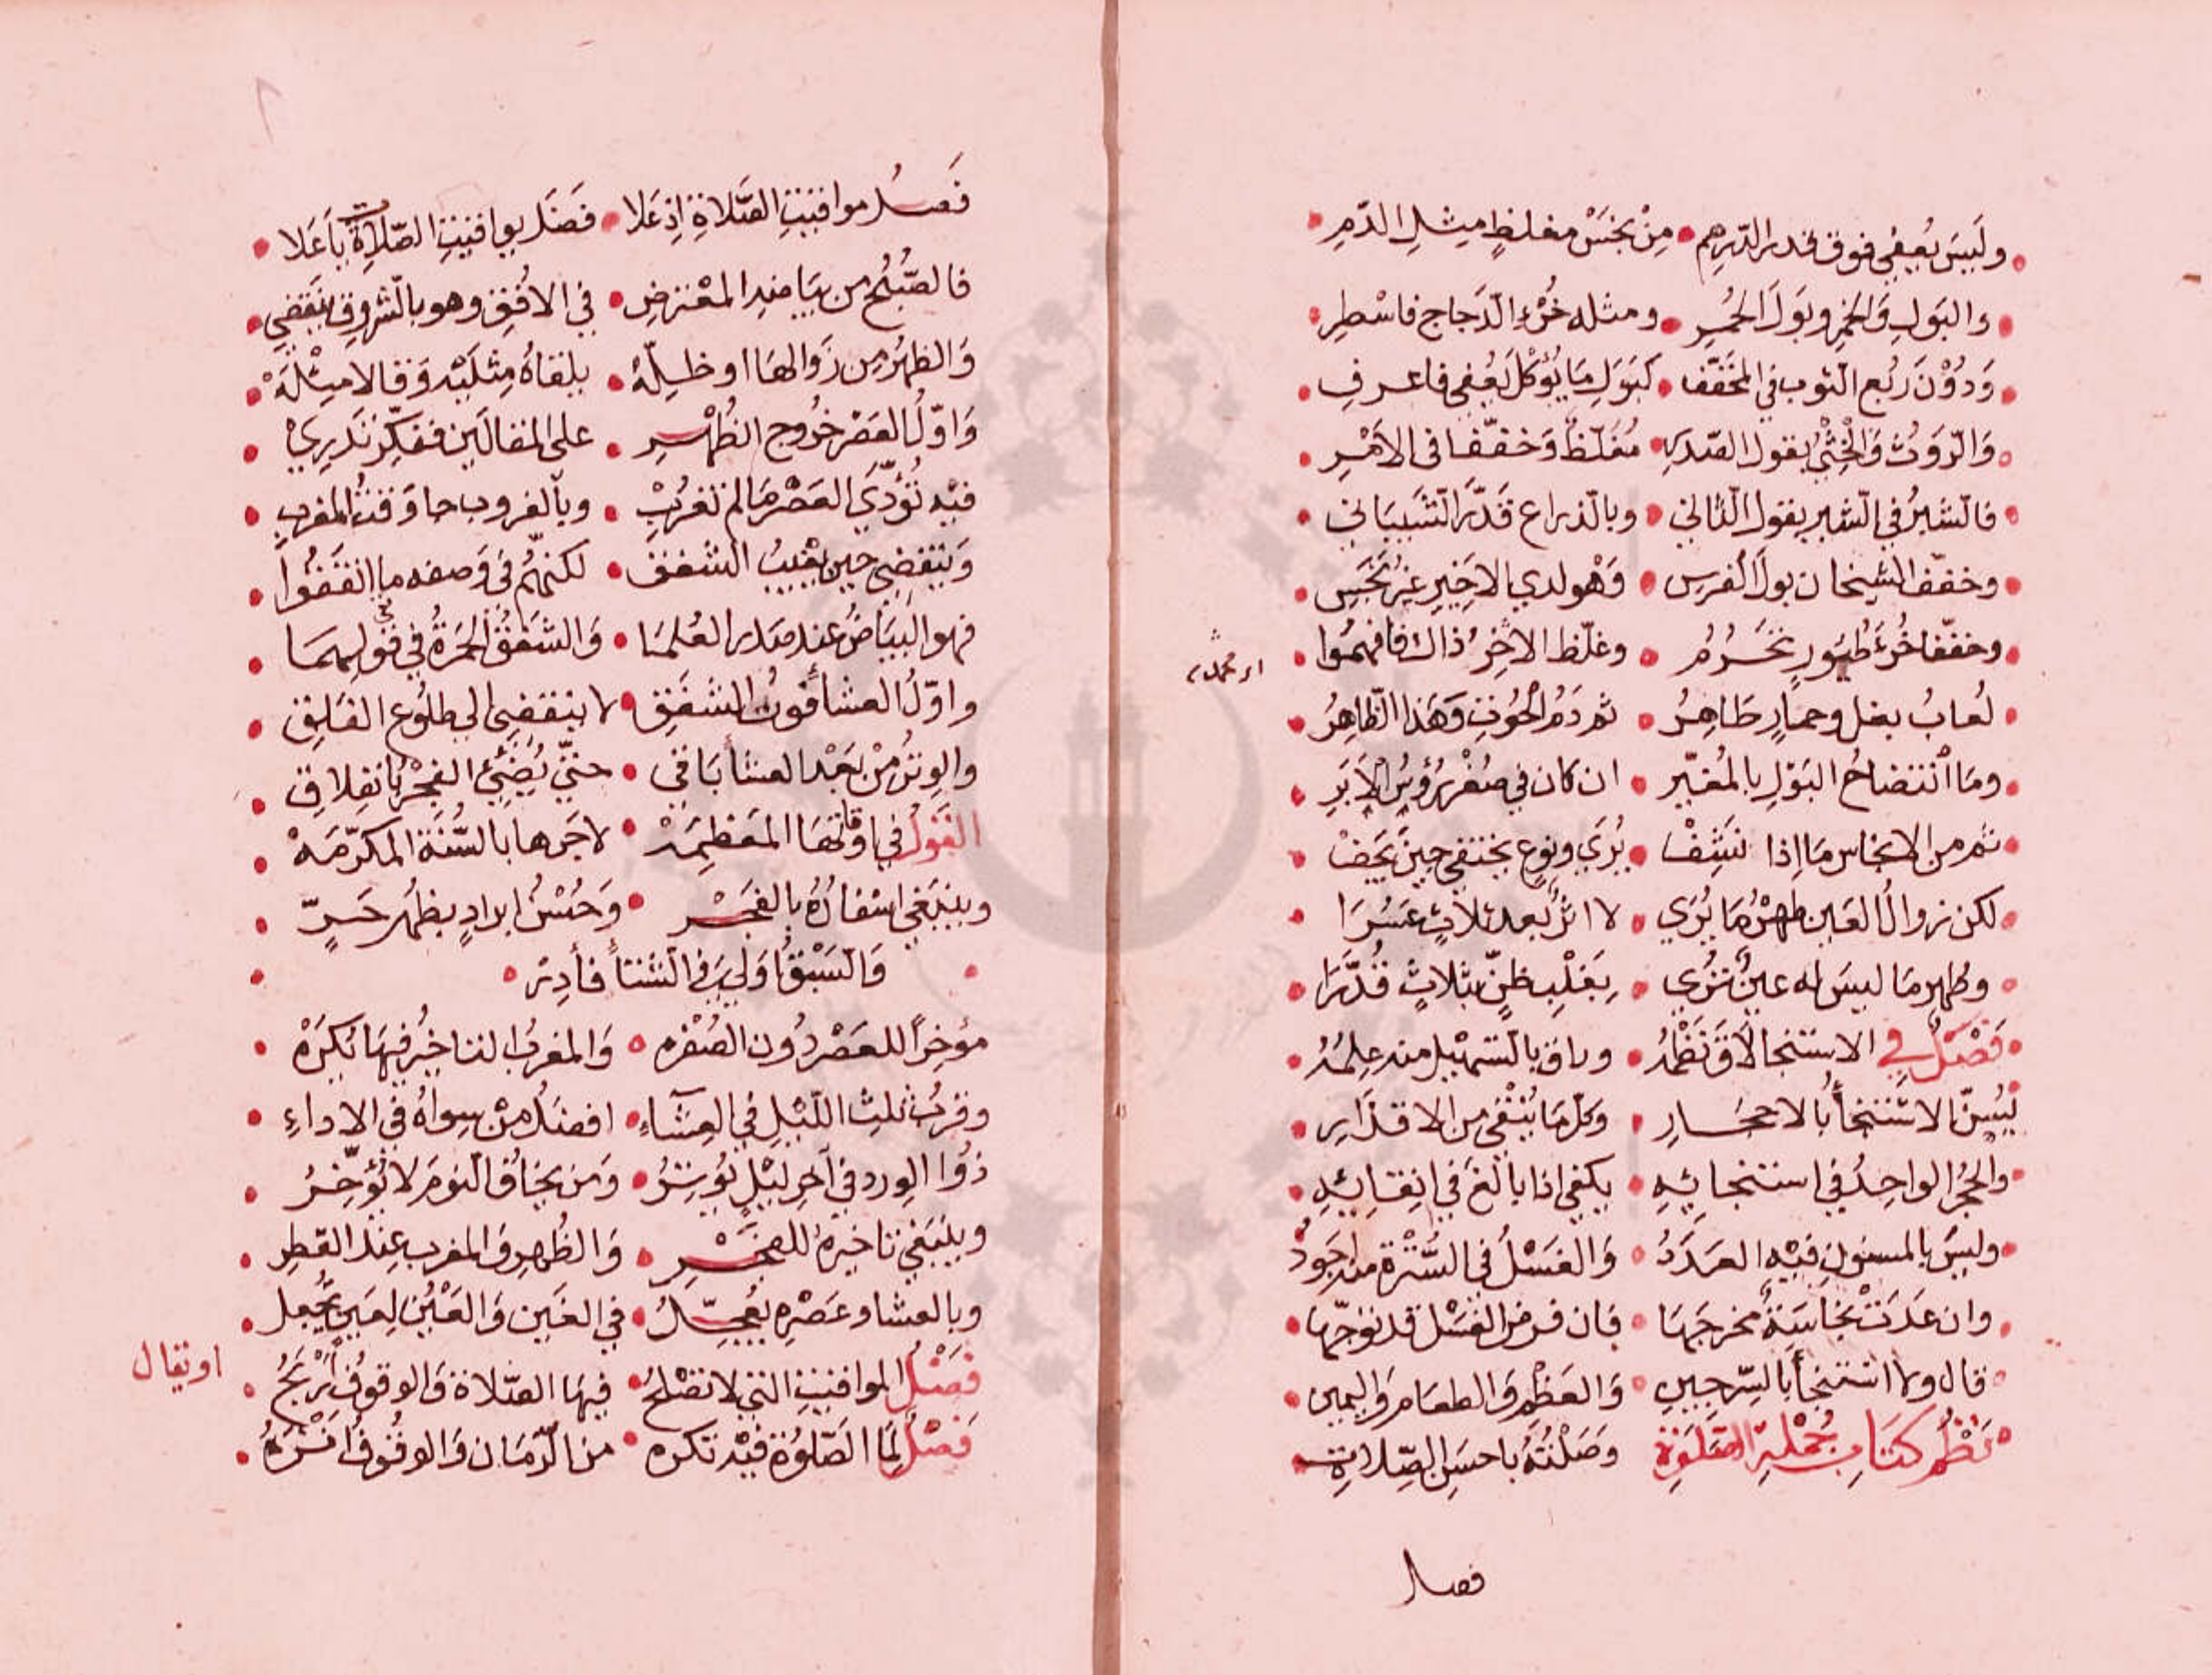 وليس يعفى فوق قدر الدرهم • من نجس مغلظ مثل الدم
والبول والخمر وبول الحمر • ومثله خرء الدجاج فاسطر
ودون ربع الثوب في المخفف • كبول ما يؤكل يعفى فاعرف
والروث والخثي بقول الصدر • مغلظ وخففا في الامر
فالشبر في الشبر بقول الثاني • وبالذراع قدر الشيباني
وخفف الشيخان بول الفرس • وهو لدي الاخير غير نجس
وخففا خرء طيور تحرم • وغلظ الاخر ذاك فافهموا
اي محمد
لعاب بغل وحمار طاهر • ثم دم الحوت وهذا الظاهر
وما انتضاح البول بالمغير • ان كان في صغر رؤس الابر
ثم من الانجاس ما اذا نشف • يري ونوع يختفي حين يجف
لكن زوال العين طهر ما يري • لا اثر بعد ثلاث عسرا
وطهر ما ليس له عين تري • بغلب ظن بثلاث قدرا
فصل في الاستنجا لاق نظمه • وراق بالتسهيل منه علمه
يسن الاستنجأ بالاحجار • وكل ما ينقي من الاقذار
والحجر الواحد في استنجائه • يكفي اذا بالغ في انقائه
وليس بالمسنون فيه العدد • والغسل في السترة منه اجود
وان عدت نجاسة مخرجها • فان فرض الغسل قد توجها
قال ولا استنجأ بالسرجين • والعظم والطعام واليمين
نظم كتاب جملة الصلوة • وصلته باحسن الصلات
فصل
فصل مواقيت الصلاة اذ علا • فصل بمواقيت الصلاة يا علا
فالصبح من بياضه المعترض • في الافق وهو بالشروق ينقضي
والظهر من زوالها او ظله • يلقاه مثليه وقالا مثله
واول العصر خروج الظهر • على المقالين ففكر تدري
فيه تؤدي العصر ما لم تغرب • وبالغروب جا وقت المغرب
وينقضي حين يغيب الشفق • لكنهم في وصفه ما اتفقوا
فهو البياض عند صدر العلما • والشفق الحمرة في قوليهما
واول العشأ فوت الشفق • لا ينقضي الى طلوع الفلق
والوتر من بعد العشأ باقي • حتى يضئ الفجر بانفلاق
القول في اوقاتها المعظمه • لاجرها بالسنة المكرمه
وينبغي اسفاره بالفجر • وحسن ابراد بظهر حر
والسبق اولى في الشتأ فأدر
مؤخرا للعصر دون الصفره • والمغرب التاخير فيها يكره
وقرب ثلث الليل في العشاء • افضل من سواه في الاداء
ذوا الورد في آخر ليل يوتر • ومن يخاف النوم لا يؤخر
وينبغي تاخيره للفجر • والظهر والمغرب عند القطر
وبالعشا وعصره يعجل • في الغين والعين لعين يجعل
فصل المواقيت التي لا تصلح • فيها الصلاة والوقوف اربح
او يقال
فصل لما الصلوة فيه تكره • من الزمان والوقوف انزه